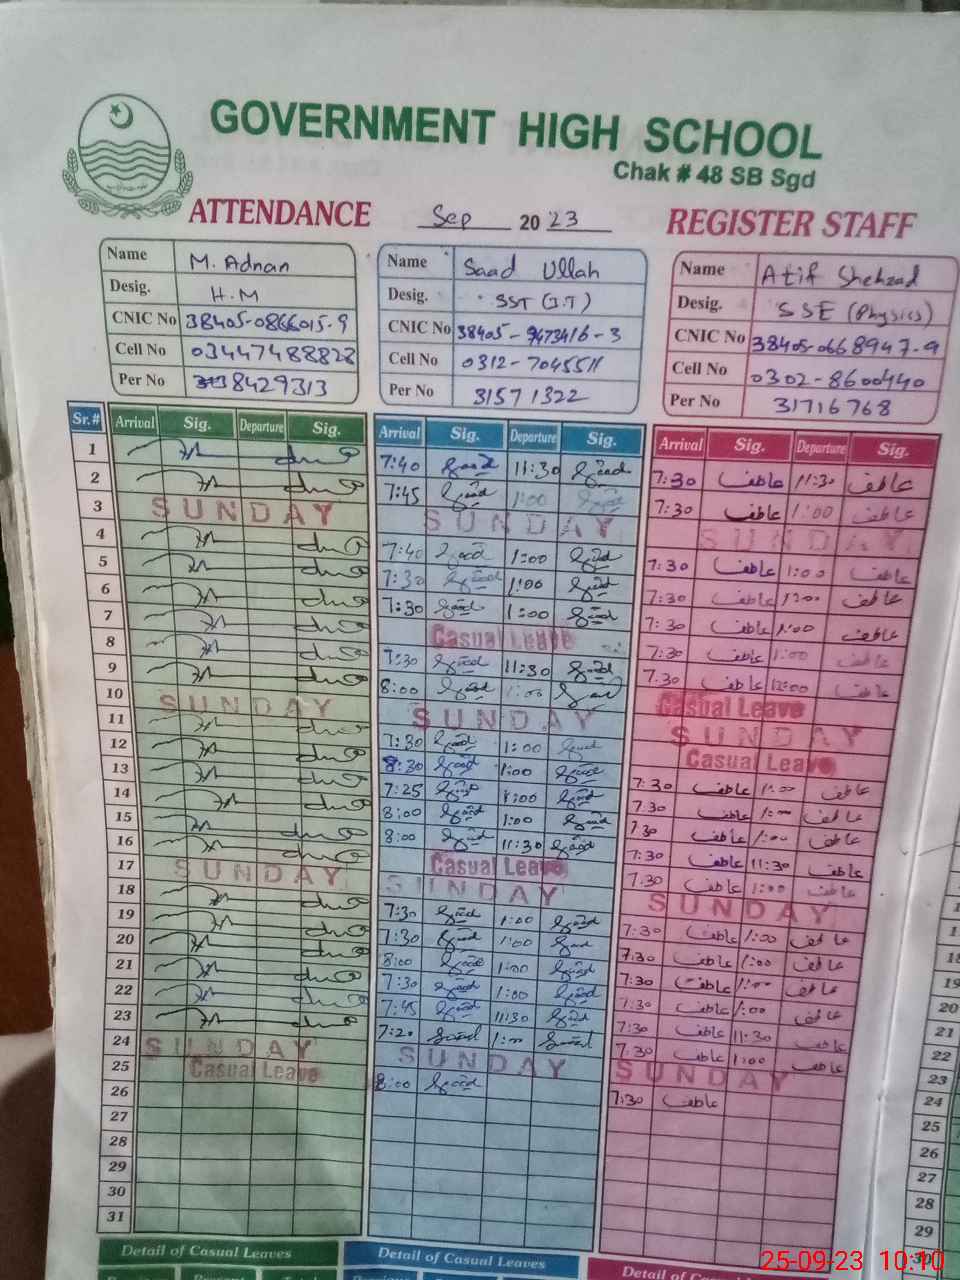 GOVERNMENT HIGH SCHOOL
Chak # 48 SB Sgd
ATTENDANCE Sep 2023 REGISTER STAFF
Name M. Adnan
Desig. H.M
CNIC No 38405-0866015-9
Cell No 03447488828
Per No 38429313
Name Saad Ullah
Desig. SST (I.T)
CNIC No 38405-9473416-3
Cell No 0312-7045511
Per No 31571322
Name Atif Shehzad
Desig. SSE (Physics)
CNIC No 38405-0668947-9
Cell No 0302-8600440
Per No 31716768
Sr.# Arrival Sig. Departure Sig. Arrival Sig. Departure Sig. Arrival Sig. Departure Sig.
1 7:40 Saad 11:30 Saad 7:30 عاطف 11:30 عاطف
2 7:45 Saad 1:00 Saad 7:30 عاطف 1:00 عاطف
3 SUNDAY SUNDAY SUNDAY
4 7:40 Saad 1:00 Saad 7:30 عاطف 1:00 عاطف
5 7:30 Saad 1:00 Saad 7:30 عاطف 1:00 عاطف
6 7:30 Saad 1:00 Saad 7:30 عاطف 1:00 عاطف
7 Casual Leave 7:30 عاطف 1:00 عاطف
8 7:30 Saad 11:30 Saad 7:30 عاطف 12:00 عاطف
9 8:00 Saad 1:00 Saad Casual Leave
10 SUNDAY SUNDAY SUNDAY
11 7:30 Saad 1:00 Saad Casual Leave
12 8:30 Saad 1:00 Saad 7:30 عاطف 1:00 عاطف
13 7:25 Saad 1:00 Saad 7:30 عاطف 1:00 عاطف
14 8:00 Saad 1:00 Saad 7:30 عاطف 1:00 عاطف
15 8:00 Saad 11:30 Saad 7:30 عاطف 11:30 عاطف
16 Casual Leave 7:30 عاطف 1:00 عاطف
17 SUNDAY SUNDAY SUNDAY
18 7:30 Saad 1:00 Saad 7:30 عاطف 1:00 عاطف
19 7:30 Saad 1:00 Saad 7:30 عاطف 1:00 عاطف
20 8:00 Saad 1:00 Saad 7:30 عاطف 1:00 عاطف
21 7:30 Saad 1:00 Saad 7:30 عاطف 1:00 عاطف
22 7:45 Saad 11:30 Saad 7:30 عاطف 11:30 عاطف
23 7:20 Saad 1:00 Saad 7:30 عاطف 1:00 عاطف
24 SUNDAY SUNDAY SUNDAY
25 Casual Leave 8:00 Saad 7:30 عاطف
26
27
28
29
30
31
18
19
20
21
22
23
24
25
26
27
28
29
30
Detail of Casual Leaves Detail of Casual Leaves Detail of Casual Leaves
25-09-23 10:10